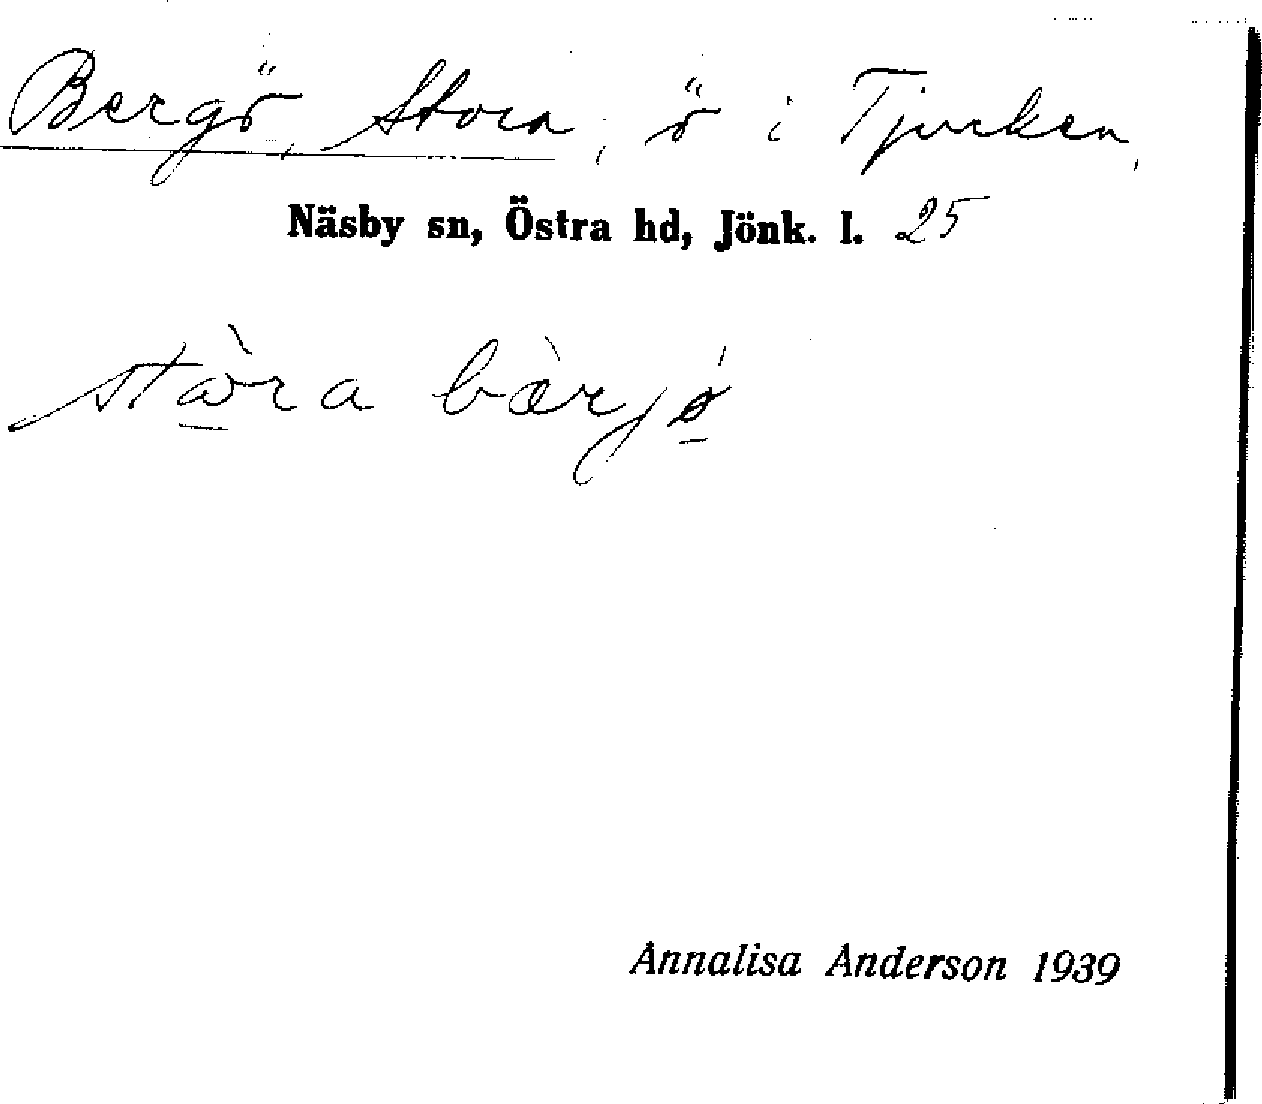 Bergö, Stora, ö i Tjurken,
Näsby sn, Östra hd, Jönk. l. 25
stὰra bærjø
Annalisa Anderson 1939